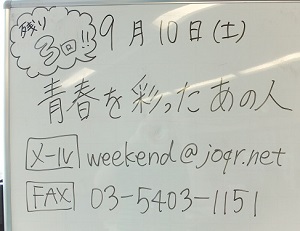 残り
3回!!
9月10日(土)
青春を彩ったあの人
メール weekend@joqr.net
FAX 03-5403-1151